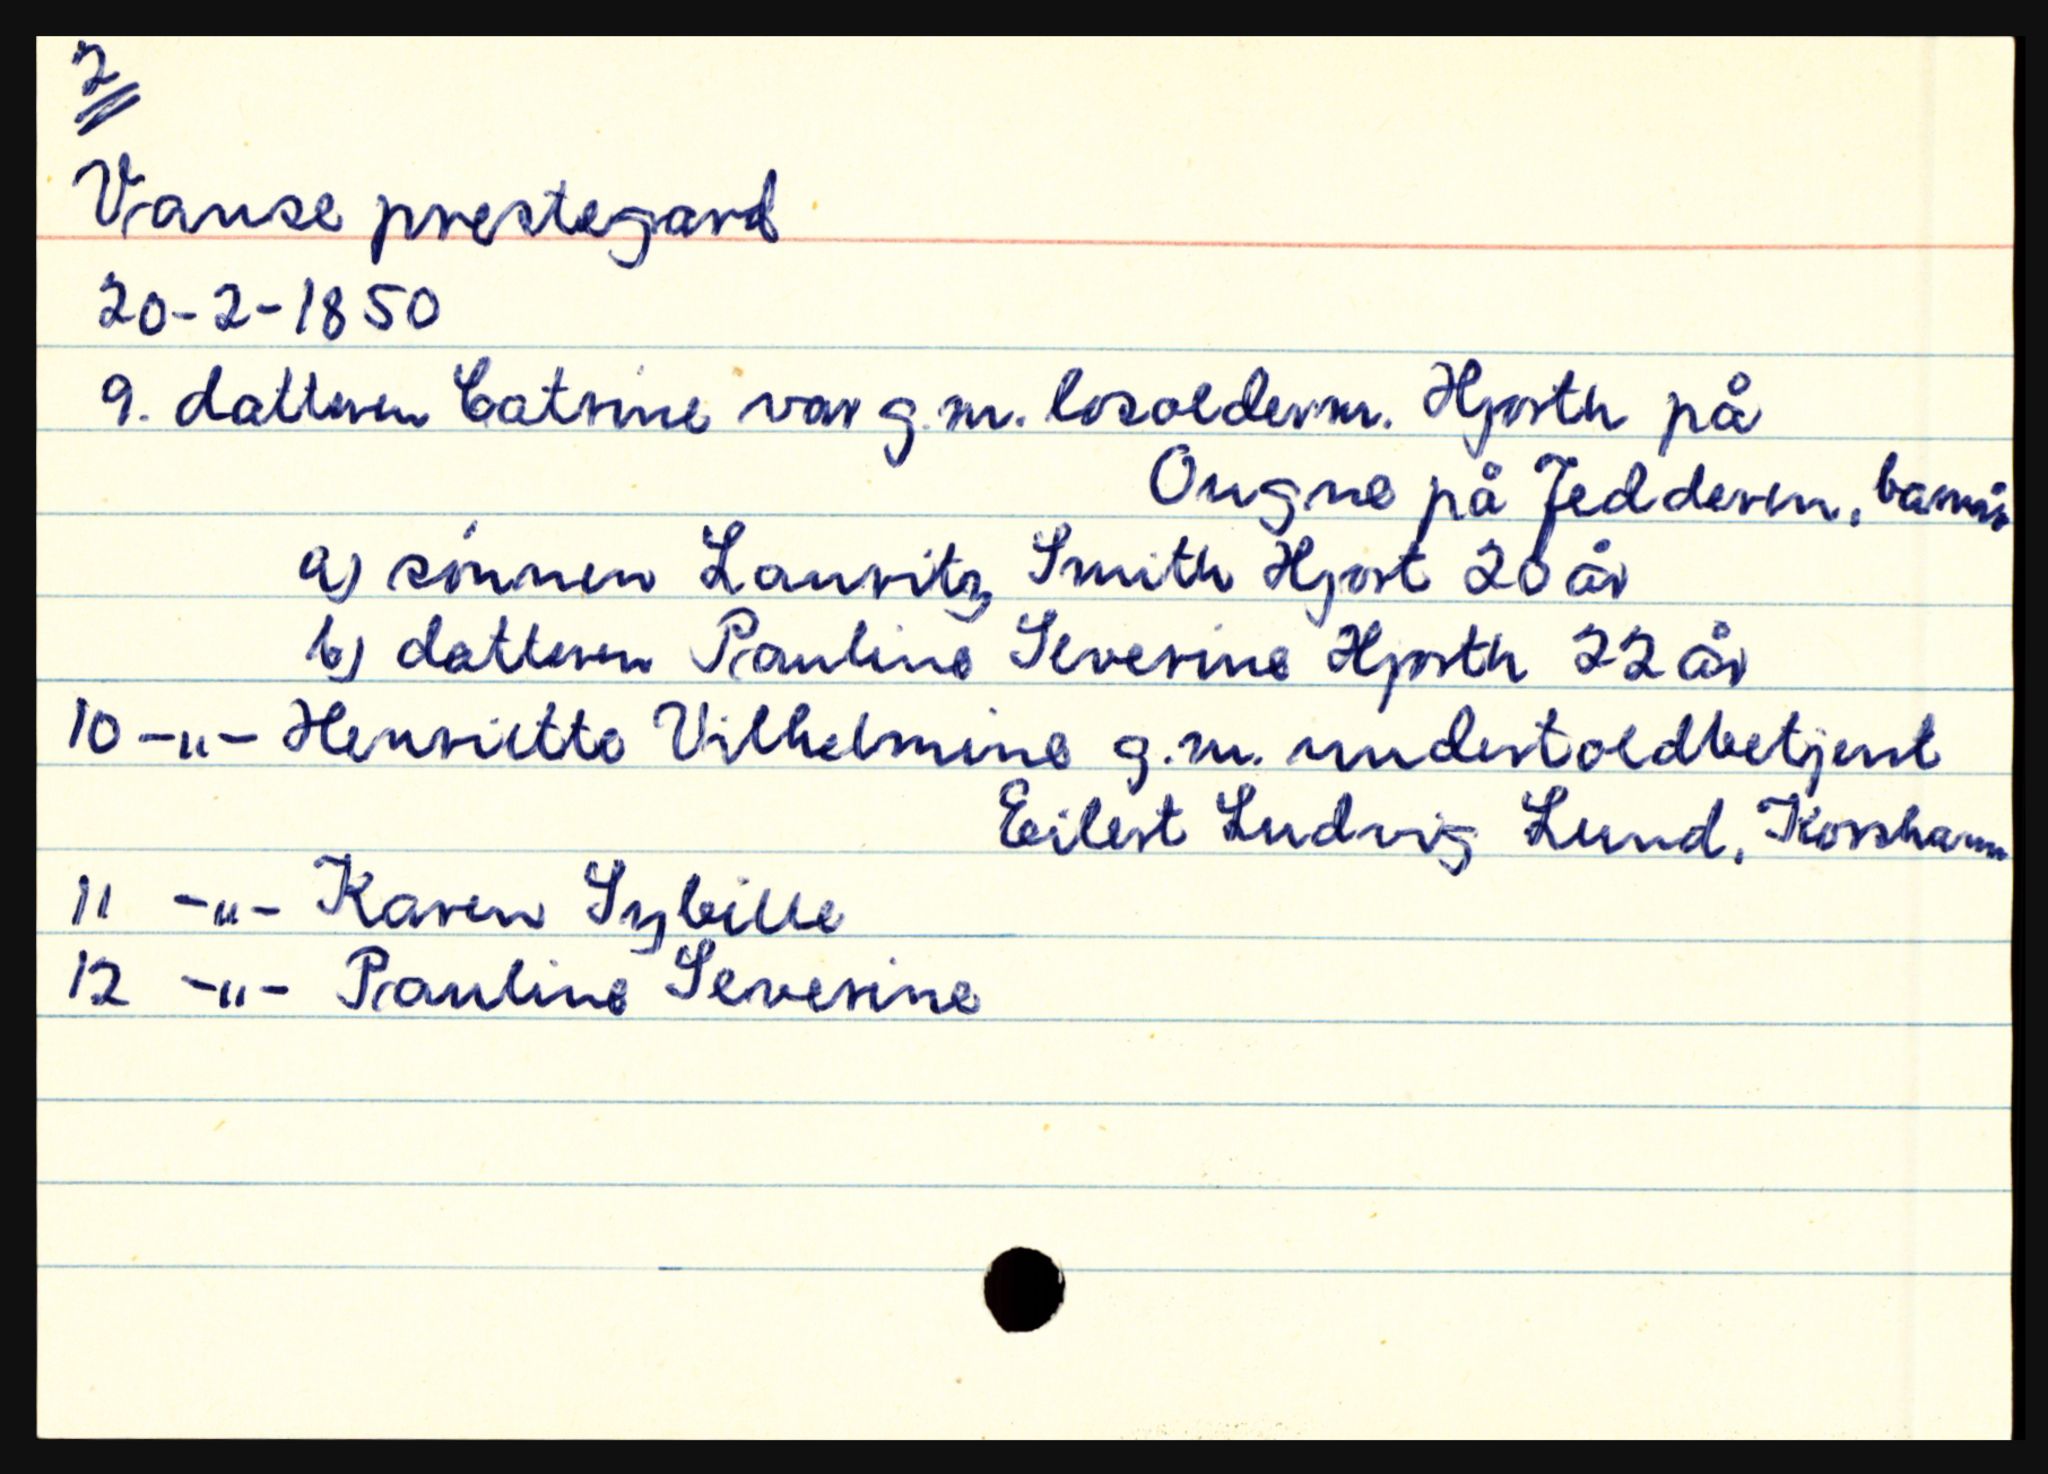 2
Vanse prestegard
20-2-1850
9. datteren Catrine var g.m. losoelderm. Hjorth på
Ougne på Jedderen, barn:
a) sønnen Lauritz Smith Hjort 20 år
b) datteren Pauline Severine Hjorth 22 år
10 -"- Henriette Vilhelmine g.m. undertoldbetjent
Eilert Ludvig Lund, Korshamn
11 -"- Karen Sybille
12 -"- Pauline Severine